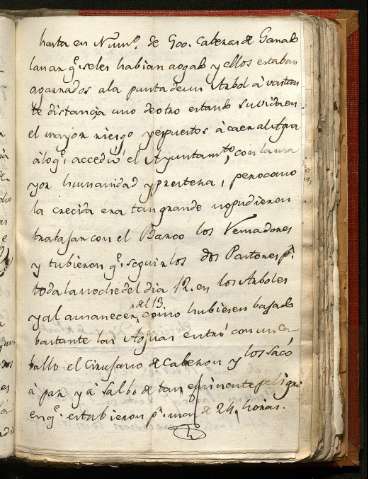 hasta en Num.º de 600. Cabezas de Ganado
lanar q.e se les habian aogado y ellos estaban
agarrados a la punta de un Arbol á bastan
te distancia uno de otro estando su vida en
el mayor riesgo y espuestos á caer al Agua
á lo q.e accedió el Ayuntam.to con la ma
yor humanidad y presteza, pero como
la crecida era tan grande no pudieron
trabajar con el Barco los Remadores
y tubieron q.e seguir los dos Pastores p.r
toda la noche del dia 12. en los Arboles
y al amanecer del 13. como hubiesen bajado
bastante las Aguas entró con un ca-
ballo el Cirujano de Cabezon y los Sacó
á paz y á Salbo de tan eminente peligro
en q.e estubieron p.r mas de 24, horas.